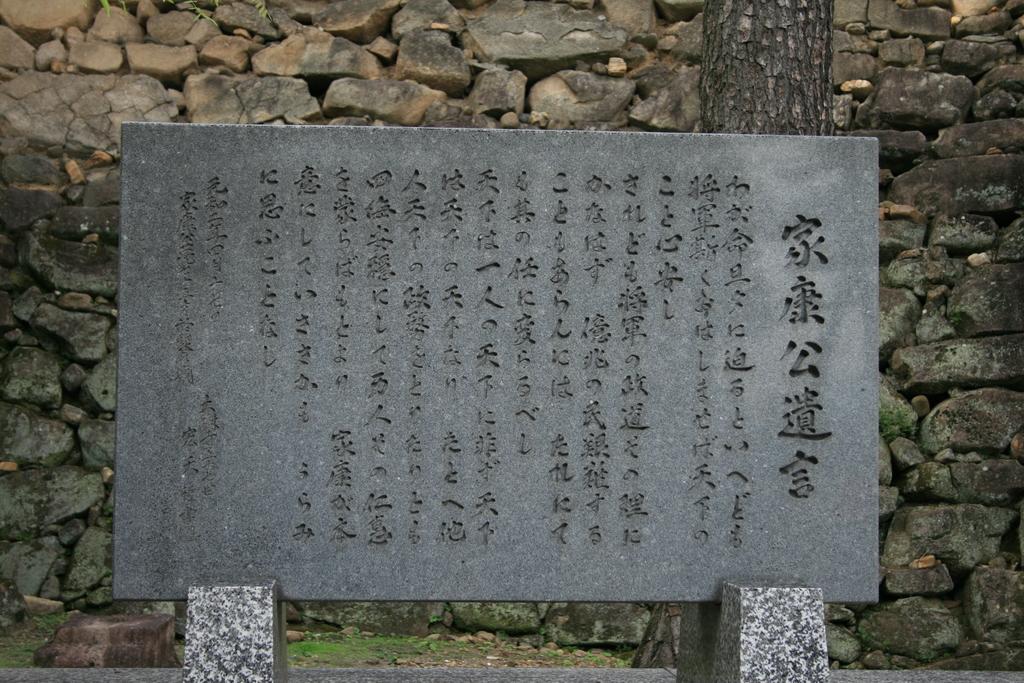 家康公遺言
わが命旦夕に迫るといへども
将軍斯くおはしませば天下の
こと心安し
されども将軍の政道その理に
かなはず 億兆の民艱難する
こともあらんには たれにて
も其の任に変らるべし
天下は一人の天下に非ず天下
は天下の天下なり たとへ他
人天下の政務をとりたりとも
四海安穏にして万人その仁恵
を蒙らばもとより 家康が本
意にしていささかも うらみ
に思ふことなし
元和二年四月十七日